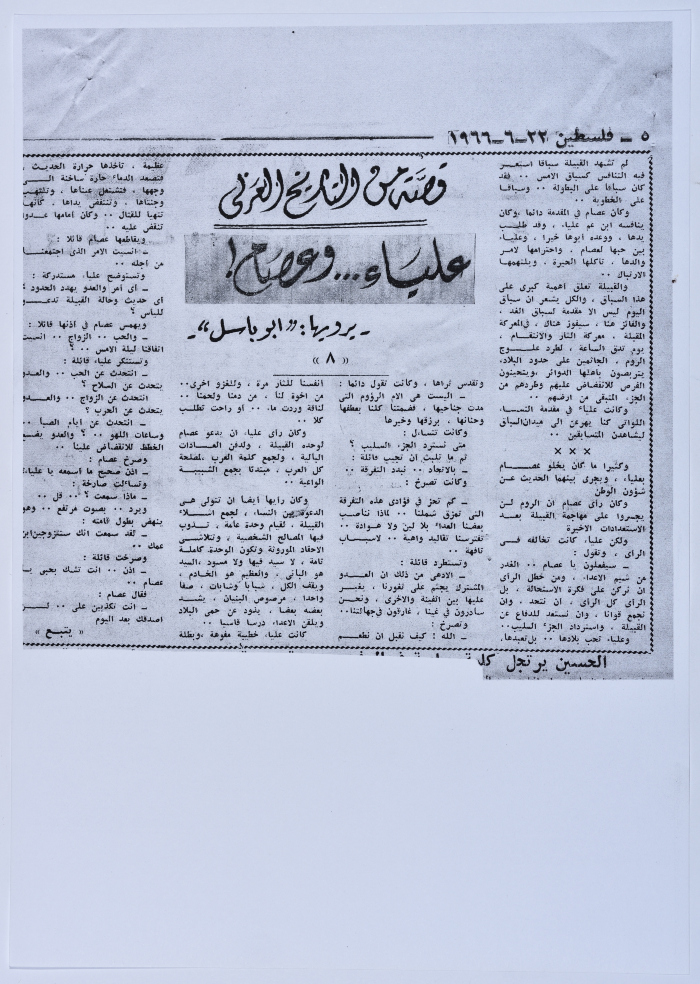 ٥ ـ فلسطين ٢٢ـ٦ـ١٩٦٦
قصة من التاريخ العربي
علياء... وعصام !
ـ يرويها : «ابو باسل» ـ
« ٨ »
لم تشهد القبيلة سباقا استعر
فيه التنافس كسباق الامس ٠٠ فقد
كان سباقا على البطولة ٠٠ وسباقا
على الخطوبة ٠٠
وكان عصام في المقدمة دائما ،وكان
ينافسه ابن عم علياء ، وقد طلب
يدها ، ووعده ابوها خيرا ، وعلياء
بين حبها لعصام ، واحترامها لامر
والدها ، تأكلها الحيرة ، ويلتهمها
الارتباك ٠٠
والقبيلة تعلق اهمية كبرى على
هذا السباق ، والكل يشعر ان سباق
اليوم ليس الا مقدمة لسباق الغد ،
والفائز هنا ، سيفوز هناك ، في المعركة
المقبلة ، معركة الثأر والانتقام ،
يوم تدق الساعة ، لطرد علوج
الروم ، الجاثمين على حدود البلاد،
يتربصون باهلها الدوائر ،ويتحينون
الفرص للانقضاض عليهم وطردهم من
الجزء المتبقي من ارضهم ٠٠
وكانت علياء في مقدمة النساء،
اللواتي كنا يهرعن الى ميدان السباق
ليشاهدن المتسابقين ٠٠
× × ×
وكثيرا ما كان يخلو عصام
بعلياء ، ويجري بينهما الحديث عن
شؤون الوطن
وكان رأي عصام ان الروم لن
يجسروا على مهاجمة القبيلة بعد
الاستعدادات الاخيرة
ولكن علياء كانت تخالفه في
الرأي ، وتقول :
ـ سيفعلون يا عصام ٠٠ الغدر
من شيم الاعداء ، ومن خطل الرأي
ان نركن على فكرة الاستحالة ، بل
الرأي كل الرأي ، ان نتحد ، وان
نجمع قوانا ، وان نستعد للدفاع عن
القبيلة ، واسترداد الجزء السليب٠٠
وعلياء تحب بلادها ٠٠ بل تعبدها،
وتقدس ثراها ، وكانت تقول دائما :
ـ اليست هي الام الرؤوم التي
مدت جناحيها ، فضمتنا كلنا بعطفها
وحنانها ، برزقها وخيرها
وكانت تتساءل :
متى نسترد الجزء السليب ؟
ثم ما تلبث ان تجيب قائلة :
ـ بالاتحاد ٠٠ نبذ التفرقة ٠٠
وكانت تصرخ :
ـ كم تحز في فؤادي هذه التفرقة
التي تمزق شملنا ٠٠ لماذا نناصب
بعضنا العداء بلا لين ولا هوادة ٠٠
تفترسنا تقاليد واهية ٠٠ لاسباب
تافهة ٠٠
وتستطرد قائلة :
ـ الادهى من ذلك ان العدو
المشترك يجثم على ثغورنا ، يغير
علينا بين الفينة والاخرى ، ونحن
سادرون في غينا ، غارقون في جهالتنا٠٠
وتصرخ :
ـ الله : كيف نقبل ان نطعم
انفسنا للنار مرة ، وللغزو اخرى٠٠
من اخوة لنا ، من دمنا ولحمنا ٠٠
لناقة وردت ماء ٠٠ او راحت تطلب
كلأ ٠٠
وكان رأي علياء ان يدعو عصام
لوحدة القبيلة ، ولدفن العادات
البالية ، ولجمع كلمة العرب ،لمصلحة
كل العرب ، مبتدئا بجمع الشبيبة
الواعية ٠٠
وكان رأيها ايضا ان تتولى هي
الدعوة بين النساء ، لجمع
القبيلة ، لقيام وحدة عامة ، تذوب
فيها المصالح الشخصية ، وتتلاشى
الاحقاد الموروثة وتكون الوحدة كاملة
تامة ، لا سيد فيها ولا مسود ،السيد
هو الباني ، والعظيم هو الخادم ،
ويقف الكل ، شبابا وشابات ، صفا
واحدا ، مرصوص البنيان ، يشد
بعضه بعضا ، يذود عن حمى البلاد
ويلقن الاعداء درسا قاسيا ٠٠
كانت علياء خطيبة مفوهة ،وبطلة
عظيمة ، تأخذها حرارة الحديث ،
فتصعد الدماء حارة ساخنة الى
وجهها ، فتشتعل عيناها ، وتلتهب
وجنتاها ، وتنتفض يداها ، كأنها
تتهيأ للقتال ٠٠ وكان امامها عدوا
تنقض عليه ٠٠
ويقاطعها عصام قائلا :
ـ انسيت الامر الذي اجتمعنا
من اجله ٠٠
وتستوضح علياء مستدركة :
ـ اي امر والعدو يهدد الحدود ؟
اي حديث وحالة القبيلة تدعو
لليأس ؟
ويهمس عصام في اذنها قائلا :
ـ والحب ٠٠ الزواج ٠٠ انسيت
اتفاقنا ليلة الامس ٠٠ ؟
وتستنكر علياء قائلة :
ـ انتحدث عن الحب ٠٠ والعدو
يتحدث عن السلاح ؟
انتحدث عن الزواج ٠٠ والعدو
يتحدث عن الحرب ؟
ـ انتحدث عن ايام الصبا ٠٠
وساعات اللهو ٠٠ ؟ والعدو يضع
الخطط للانقضاض علينا ٠٠
وصرخ عصام :
ـ اذن صحيح ما اسمعه يا علياء
وتساءلت صارخة :
ـ ماذا سمعت ؟ ٠٠ قل ٠٠
ويرد ٠٠ بصوت مرتفع ٠٠ وهو
ينهض بطول قامته :
ـ لقد سمعت انك ستتزوجين ابن
عمك ٠٠
وصرخت قائلة :
ـ اذن ٠٠ انت تشك بحبي يا
عصام ٠٠
فقال عصام :
ـ انت تكذبين علي ٠٠ لن
اصدقك بعد اليوم
« يتبع »
الحسين يرتجل